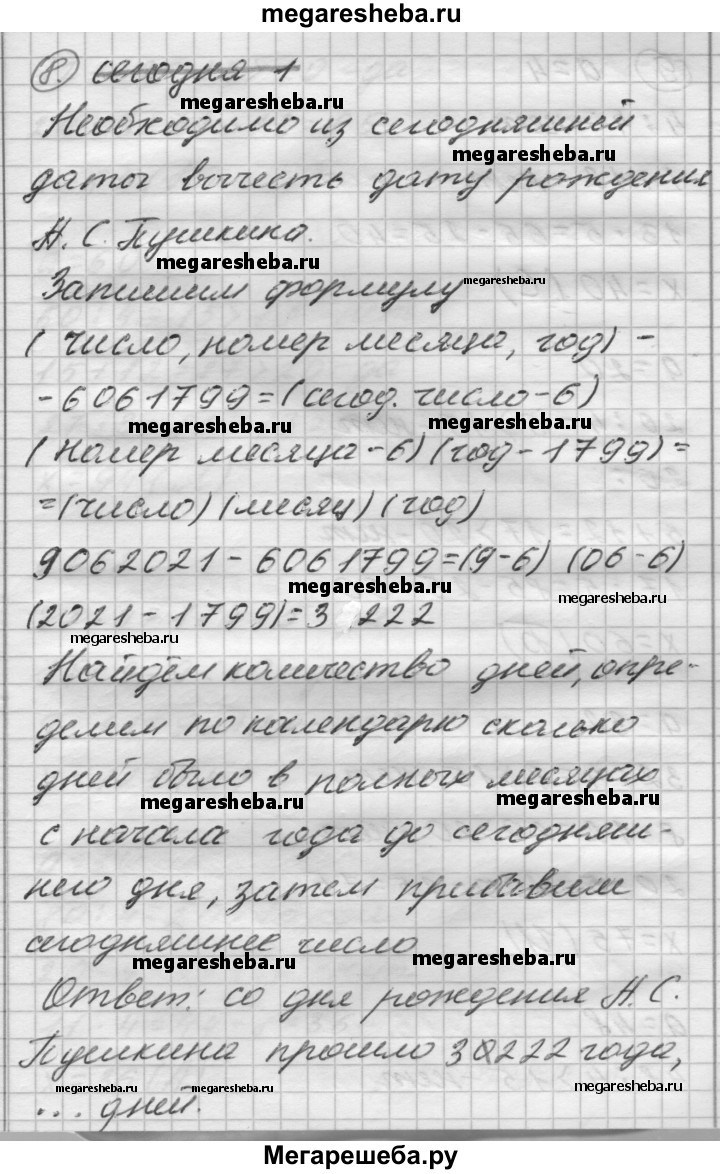 megaresheba.ru
8. сегодня 1
megaresheba.ru
Необходимо из сегодняшней
megaresheba.ru
даты вычесть дату рождения
А. С. Пушкина.
megaresheba.ru
Запишим формулу
megaresheba.ru
( число, номер месяца, год) -
- 6061799 = (сегод. число - 6)
megaresheba.ru megaresheba.ru
( номер месяца - 6) (год - 1799) =
= (число) (месяц) (год)
9062021 - 6061799 = (9-6) (06-6)
megaresheba.ru megaresheba.ru
(2021 - 1799) = 3 222
megaresheba.ru
Найдём количество дней, опре-
делим по календарю сколько
дней было в полных месяцах
megaresheba.ru megaresheba.ru
с начала года до сегодняш-
него дня, затем прибавим
сегодняшнее число
megaresheba.ru megaresheba.ru
Ответ: со дня рождения А. С.
Пушкина прошло 30222 года,
megaresheba.ru megaresheba.ru megaresheba.ru
... дней.
Мегарешеба.ру